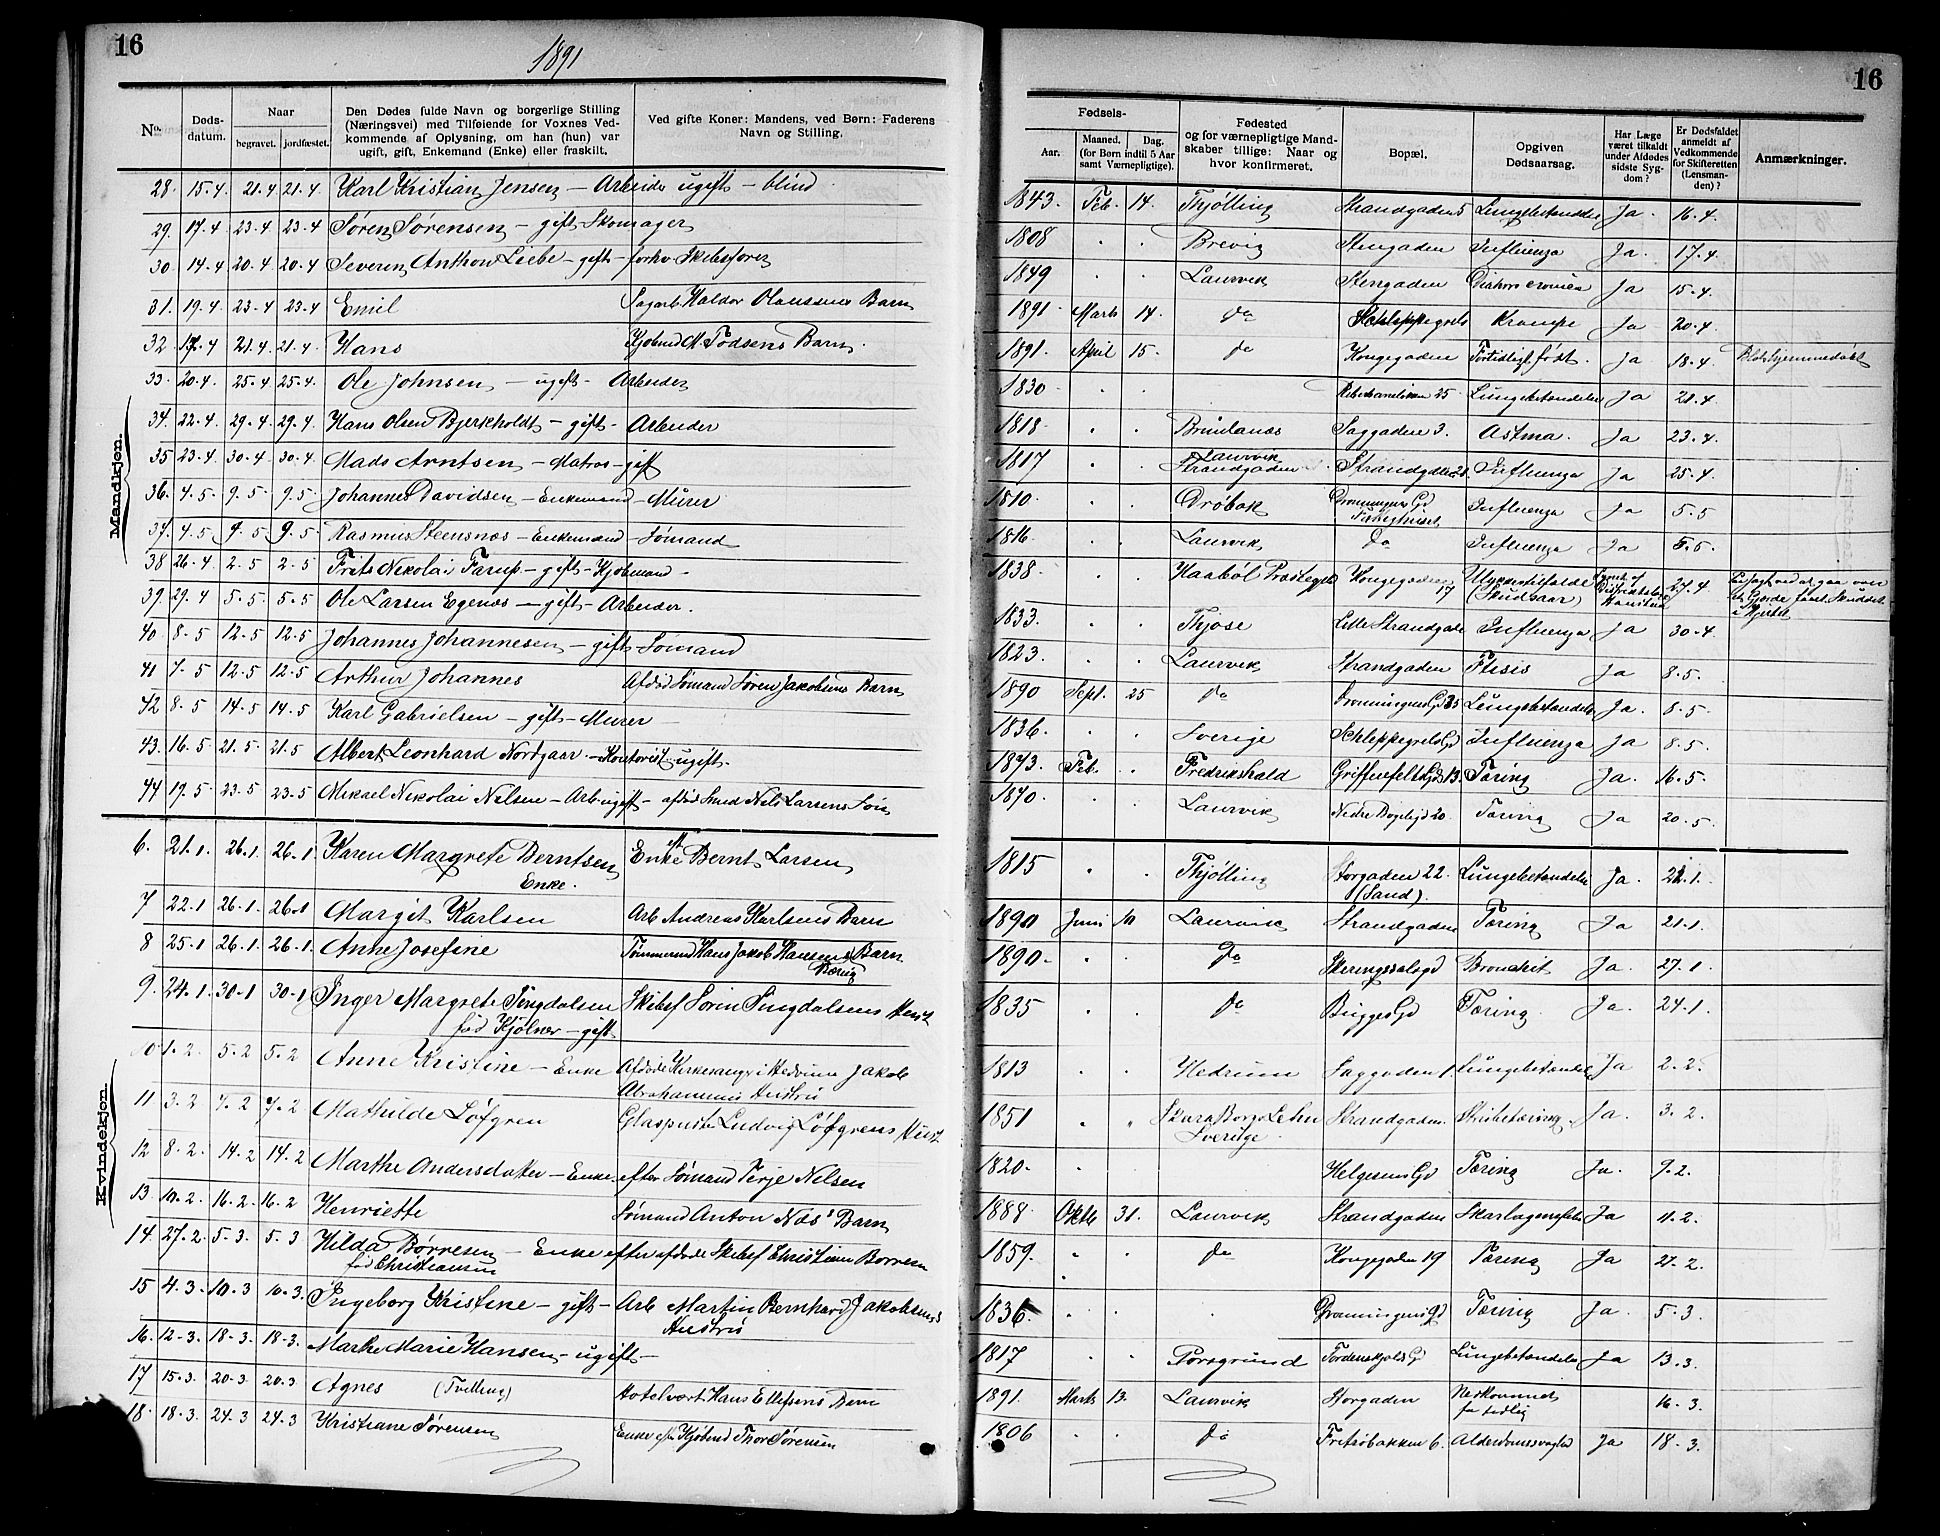 16
1891
No. Døds-datum. Naar begravet. jordfæstet. Den Dødes fulde Navn og borgerlige Stilling (Næringsvei) med Tilføiende for Voxnes Vedkommende af Oplysning, om han (hun) var ugift, gift, Enkemand (Enke) eller fraskilt. Ved gifte Koner: Mandens, ved Børn: Faderens Navn og Stilling.
Mandkjøn.
28. 15.4 21.4 21.4 Karl Kristian Jensen – Arbeider ugift – blind
29. 17.4 23.4 23.4 Søren Sørensen – gift Skomager
30 14.4 20.4 20.4 Severin Anthon Liebe – gift – forhv Skibsfører
31. 19.4 23.4 23.4 Emil Sagarb Haldor Olaussens Barn
32 17.4 21.4 21.4 Hans Kjøbmd M. Tødsens Barn
33. 20.4 25.4 25.4. Ole Johnsen – ugift – Arbeider
34. 22.4 29.4 29.4 Hans Olsen Bjerkholdt – gift – Arbeider
35 23.4 30.4 30.4 Mads Arntsen – Matros – gift
36. 4.5 9.5 9.5 Johannes Davidsen – Enkemand – Murer
37. 4.5 9.5 9.5 Rasmus Steensnæs – Enkemand – Sømand
38 26.4 2.5 2.5 Frits Nikolai Farup – gift – Kjøbmand –
39. 29.4 5.5 5.5 Ole Larsen Egenæs – gift – Arbeider.
40 8.5 12.5 12.5 Johannes Johannesen – gift Sømand
41 7.5 12.5 12.5 Arthur Johannes Afdød Sømand Søren Jakobsens Barn
42 8.5 14.5 14.5 Karl Gabrielsen – gift – Murer –
43. 16.5 21.5 21.5 Albert Leonhard Nordgaar – Kontorist ugift.
44 19.5 23.5 23.5 Mikael Nikolai Nilsen – Arb ugift – afdød Smed Nils Larsens Søn
Kvindekjøn.
6. 21.1. 26.1 26.1 Karen Margrete Berntsen Enke Bernt Larsen
Enke.
7 22.1 26.1 26.1 Margit Karlsen Arb Andreas Karlsens Barn
8 25.1 26.1 26.1. Anne Josefine Tømmermd Hans Jakob Hansens Barn
9. 24.1. 30.1 30.1 Inger Margrete Tingdalsen Skibsf Sørin Tingdalsens Hust
fød Kjølner – gift
10 1.2. 5.2 5.2 Anne Kristine – Enke Afdøde Kirkesanger i Hedrum Jakob
Abrahamsens Hustru
11 3.2 7.2 7.2 Mathilde Løfgren Glaspuster Ludvig Løfgrens Hust
12 8.2. 14.2 14.2 Marthe Andersdatter – Enke efter Sømand Terje Nilsen
13. 10.2. 16.2. 16.2 Henriette Sømand Anton Næs' Barn
14. 27.2. 5.3. 5.3 Hilda Børresen – Enke efter afdøde Skibsf Christian Børresen
fød Christiansen
15 4.3. 10.3 10.3. Ingeborg Kristine – gift – Arb Martin Bernhard Jakobsens
Hustru
16. 12.3. 18.3. 18.3. Marthe Marie Hansen – ugift –
17 15.3. 20.3 20.3 Agnes (Tvilling) Hotelvært Hans Ellefsens Barn
18. 18.3. 24.3 24.3 Kristiane Sørensen Enke eft Kjøbmd Thor Sørensen
16
Fødsels- Aar. Maaned. Dag. (for Børn indtil 5 Aar samt Værnepligtige). Fødested og for værnepligtige Mandskaber tillige: Naar og hvor konfirmeret. Bopæl. Opgiven Dødsaarsag. Har Læge været tilkaldt under Afdødes sidste Sygdom? Er Dødsfaldet anmeldt af Vedkommende for Skifteretten (Lensmanden)? Anmærkninger.
1843. Feb. 14. Thjølling Strandgaden 5 Lungebetændelse Ja. 16.4.
1808 Brevig Stengaden Influenza Ja. 17.4.
1849 Laurvik Stengaden Ja 15.4.
1891 Marts 14. do Krampe Ja 20.4.
1891. April 15. do Kongegaden Fortidligt født. Ja 18.4. hjemmedøbt
1830 25 Lungebetændelse Ja 21.4.
1818 Brunlanæs Saggaden 3. Astma. Ja 23.4.
1817 Laurvik
Strandgaden Strandgaden 21. Influenza Ja 25.4.
1810. Drøbak Dronningens Gd
Fattighuset Influenza Ja 5.5
1816. Laurvik do Influenza Ja 5.5.
1838 Haabøl Præstegjd Kongegaden 17 Ulykkestilfælde (Skudsaar) 27.4 i Hjertet
1833. Thjøse Lille Strandgade Influenza Ja 30.4.
1823. Laurvik Strandgaden Ftisis Ja 8.5.
1890 Sept. 25 do Dronningens Gd 35 Lungebetændelse Ja. 8.5.
1836. Sverige Schleppegrels Gd Influenza Ja 8.5.
1873. Feb. Fredrikshald Griffenfelts Gd 13. Tæring Ja. 16.5.
1870. Laurvik Nedre Bøgeligd 20. Tæring Ja 20.5.
1815 Thjølling Storgaden 22.
(Sand). Lungebetændelse Ja. 22.1.
1890 Juni 10 Laurvik Strandgaden Tæring Ja 21.1.
1890. do Skiringssalsgd Bronchit Ja. 27.1
1835 do Brugges Gd Tæring. Ja. 24.1.
1813 Hedrum Saggaden 1. Lungebetændel Ja 2.2.
1851 Skara Borgs Lehn
Sverige Strandgaden. Strubetæring. Ja. 3.2.
1820. Helgesens Gd Tæring Ja. 9.2.
1888 Oktb 31. Laurvik Strandgaden Skarlagensfeber Ja 11.2.
1859. do Kongegaden 19 Tæring Ja 27.2.
1836. Dronningens Gd Tæring Ja. 5.3.
1817 Porsgrund Tordenskjolds Gd Lungebetændelse Ja 13.3.
1891. Marts 13. Laurvik Storgaden Nedkommet
for tidlig 16.3.
1806 do Fritzøbakken 6. Alderdomssvaghed Ja 18.3.